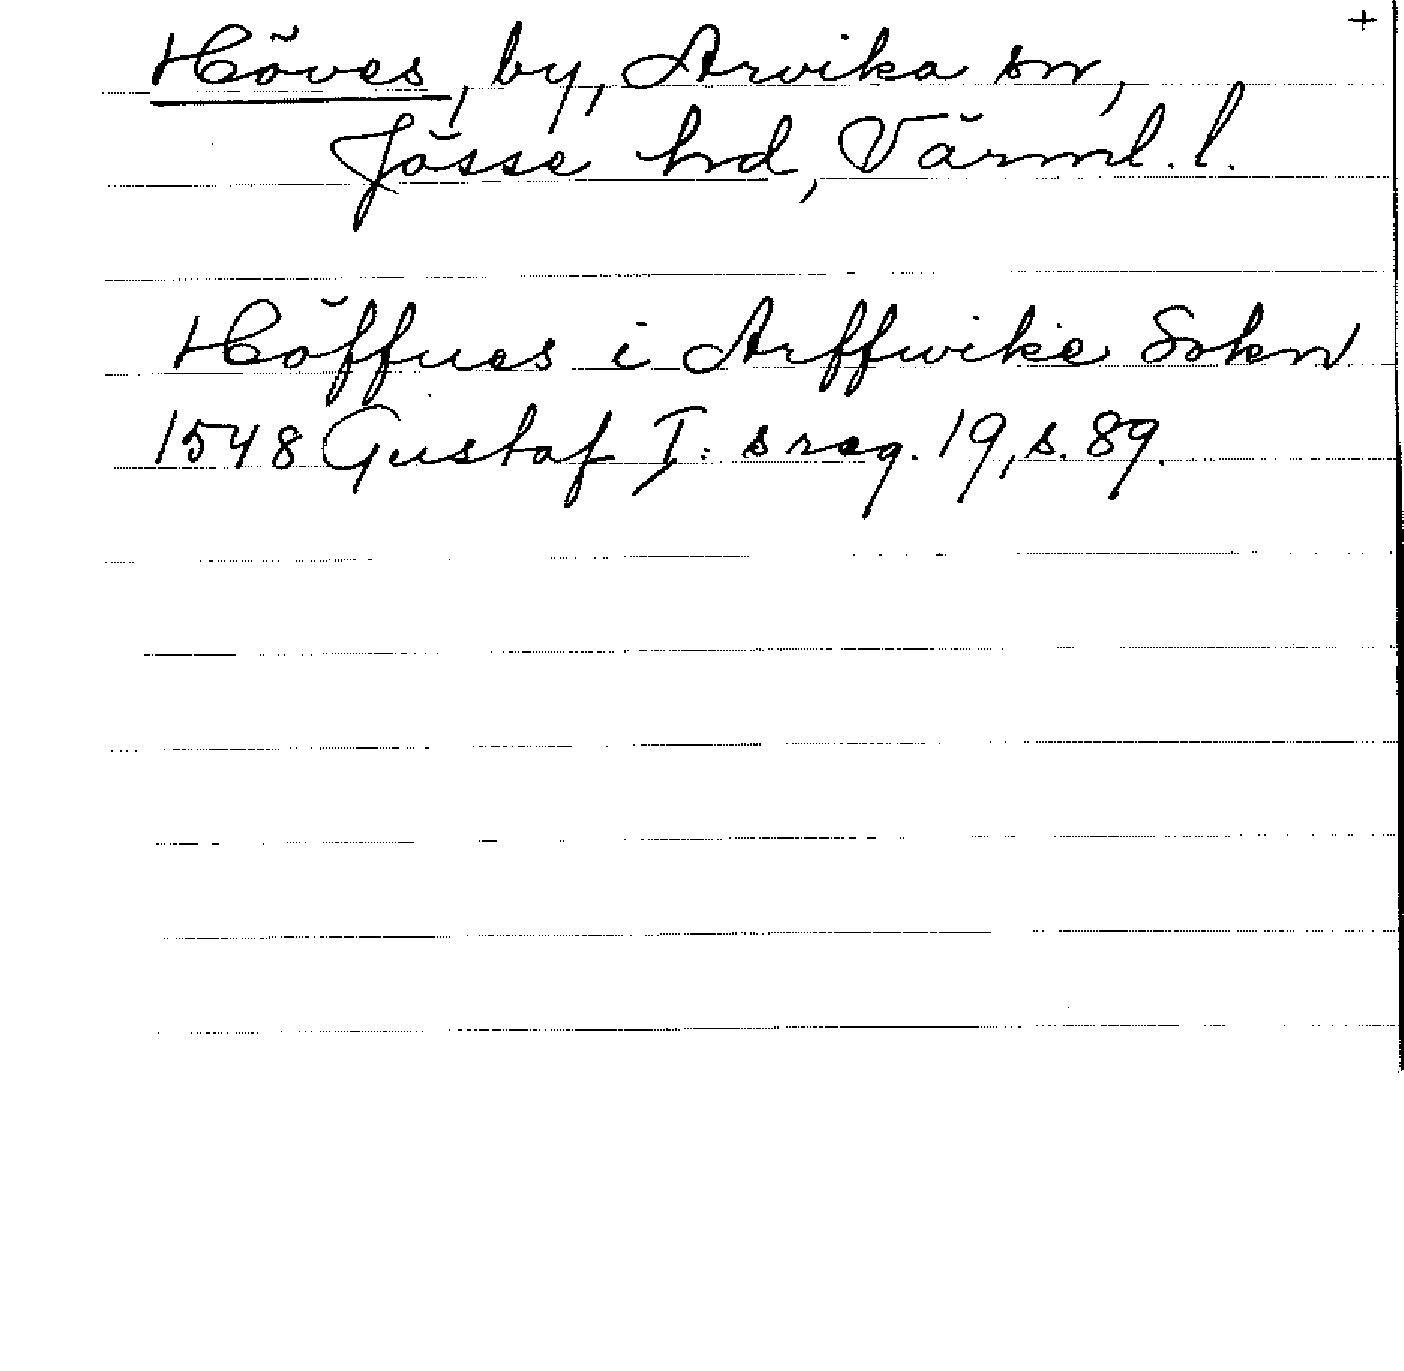 +
Höves, by, Arvika sn,
Jösse hd, Värml. l.
Höffues i Arffwike Sokn
1548 Gustaf I:s reg. 19, s. 89.